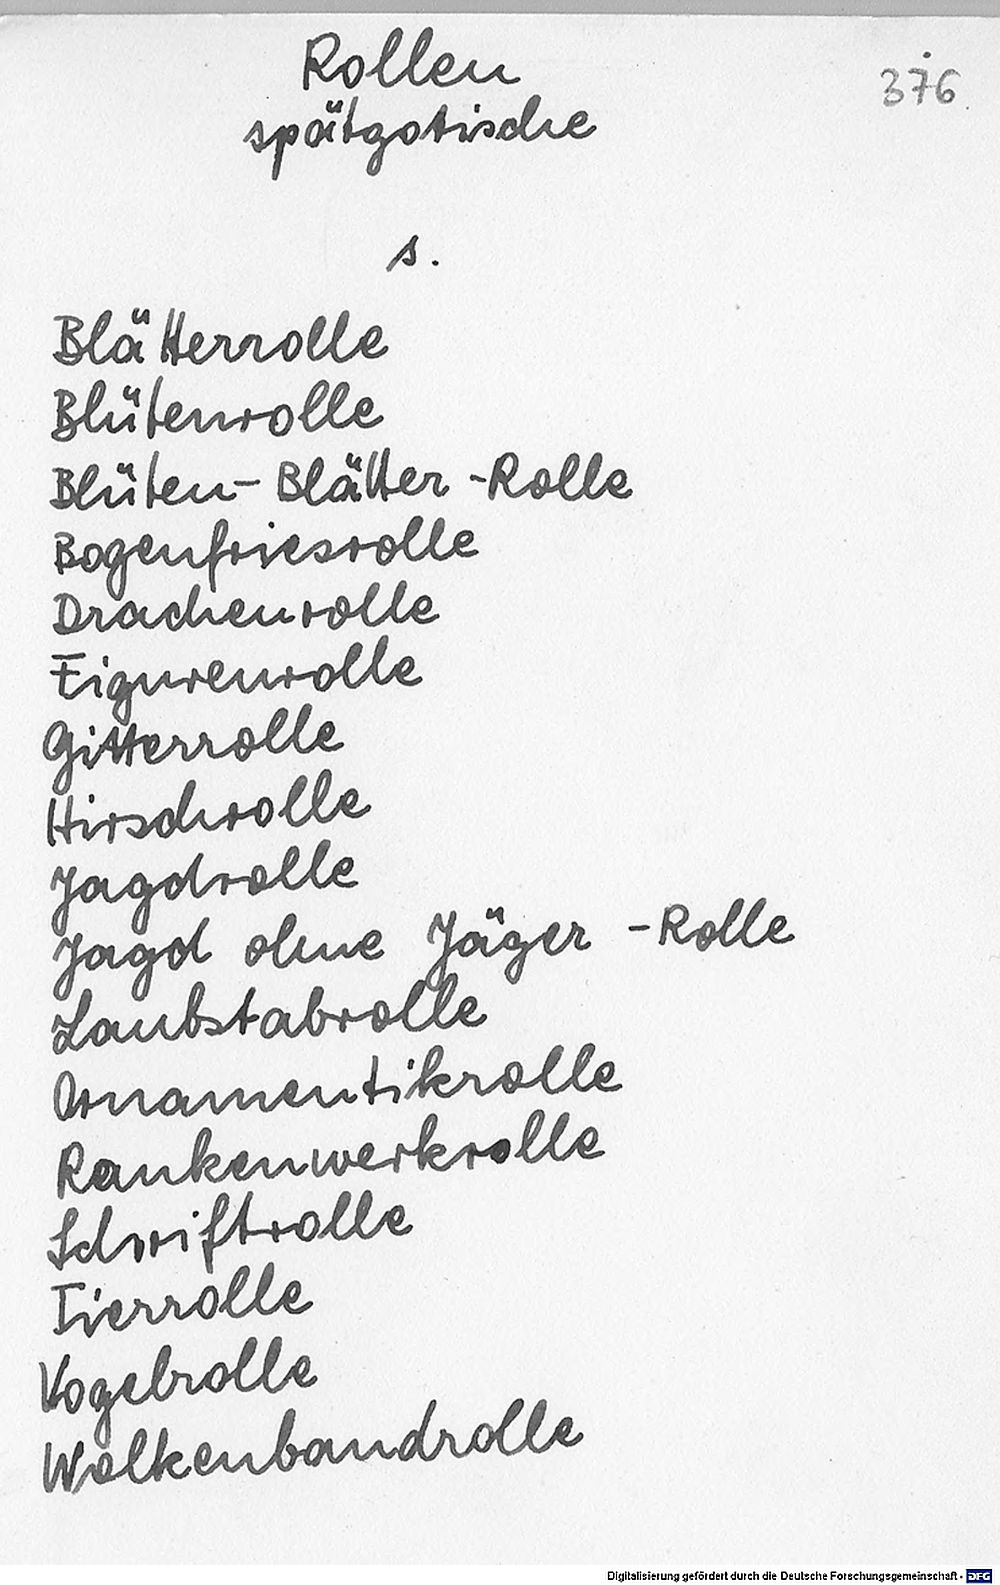 Rollen
376
spätgotische
s.
Blätterrolle
Blütenrolle
Blüten-Blätter-Rolle
Bogenfriesrolle
Drachenrolle
Figurenrolle
Gitterrolle
Hirschrolle
Jagdrolle
Jagd ohne Jäger-Rolle
Laubstabrolle
Ornamentikrolle
Rankenwerkrolle
Schriftrolle
Tierrolle
Vogelrolle
Wolkenbandrolle
Digitalisierung gefördert durch die Deutsche Forschungsgemeinschaft - DFG